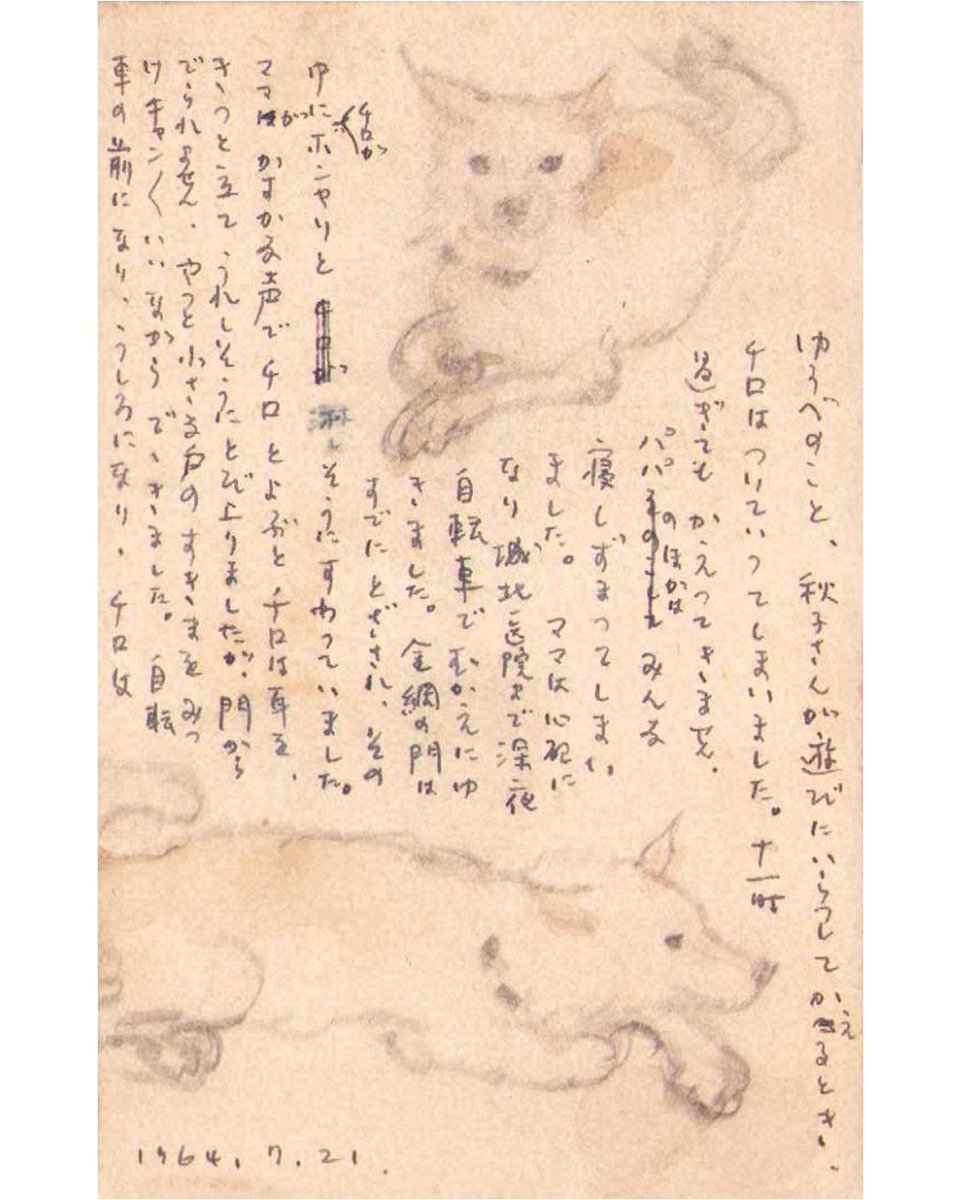 ゆうべのこと、秋子さんが遊びにいらつしてかえるとき、
チロはついていつてしまいました。十一時
過ぎてもかえつてきません。
パパのほかはみんな
寝しずまつてしまい
ました。ママは心配に
なり城北医院まで深夜
自転車でむかえにゆ
きました。金網の門は
すでにとざされ、その
中にチロがボンヤリと淋しそうにすわつていました。
ママがかすかな声でチロとよぶとチロは耳を、
きつと立て、うれしそうにとび上りましたが、門から
でられません、やつと小さな戸のすきまをみつ
けキャン〱いいながらでゝきました。自転
車の前になり、うしろになり、チロは
1964.7.21.